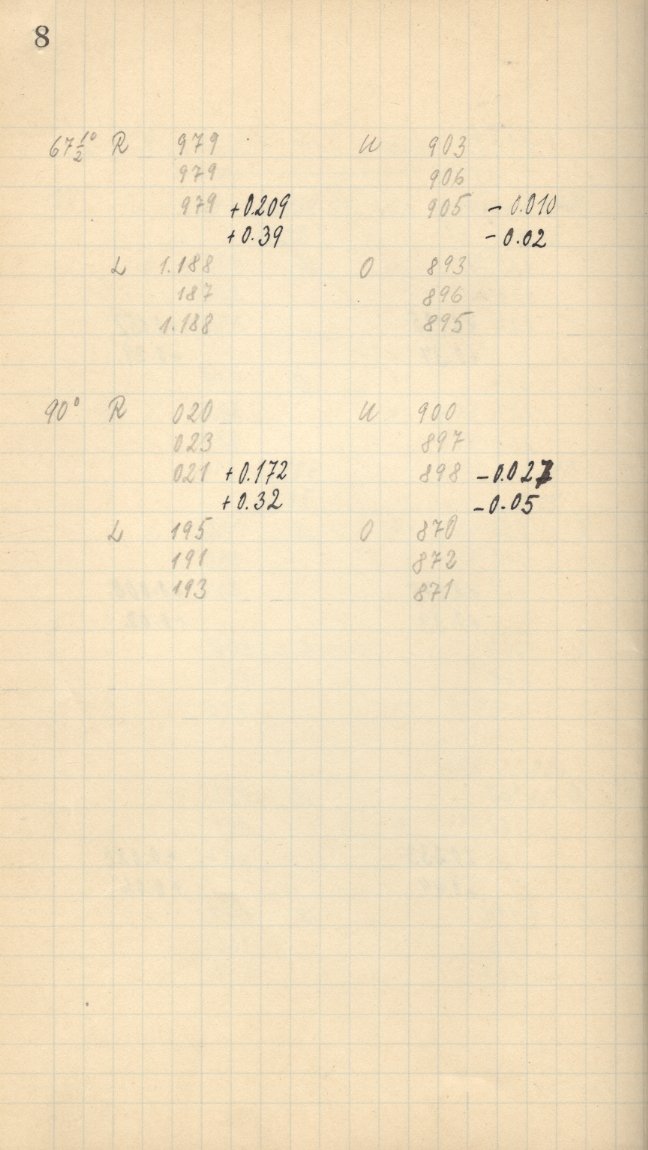 8
67 1/2° R 979 U 903
979 906
979 +0.209 905 -0.010
+0.39 -0.02
L 1.188 O 893
187 896
1.188 895
90° R 020 U 900
023 897
021 +0.172 898 -0.027
+0.32 -0.05
L 195 O 870
191 872
193 871